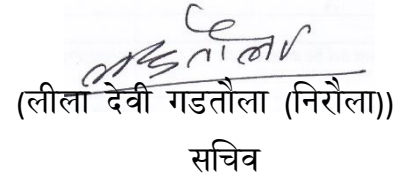 (लीला देवी गडतौला (निरौला))
सचिव